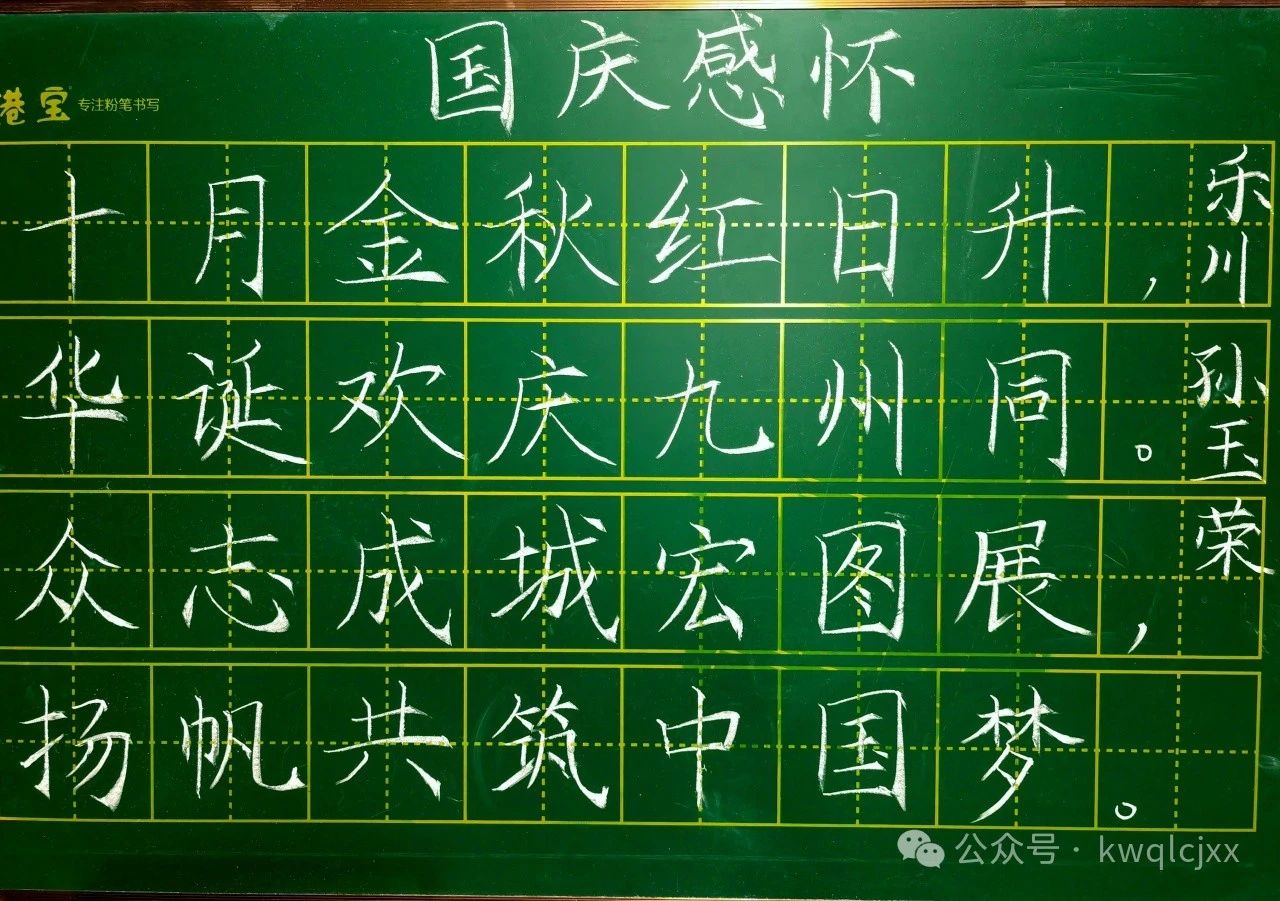 国庆感怀
港宝 专注粉笔书写
十月金秋红日升，
华诞欢庆九州同。
众志成城宏图展，
扬帆共筑中国梦。
乐川
孙玉荣
公众号 · kwqlcjxx